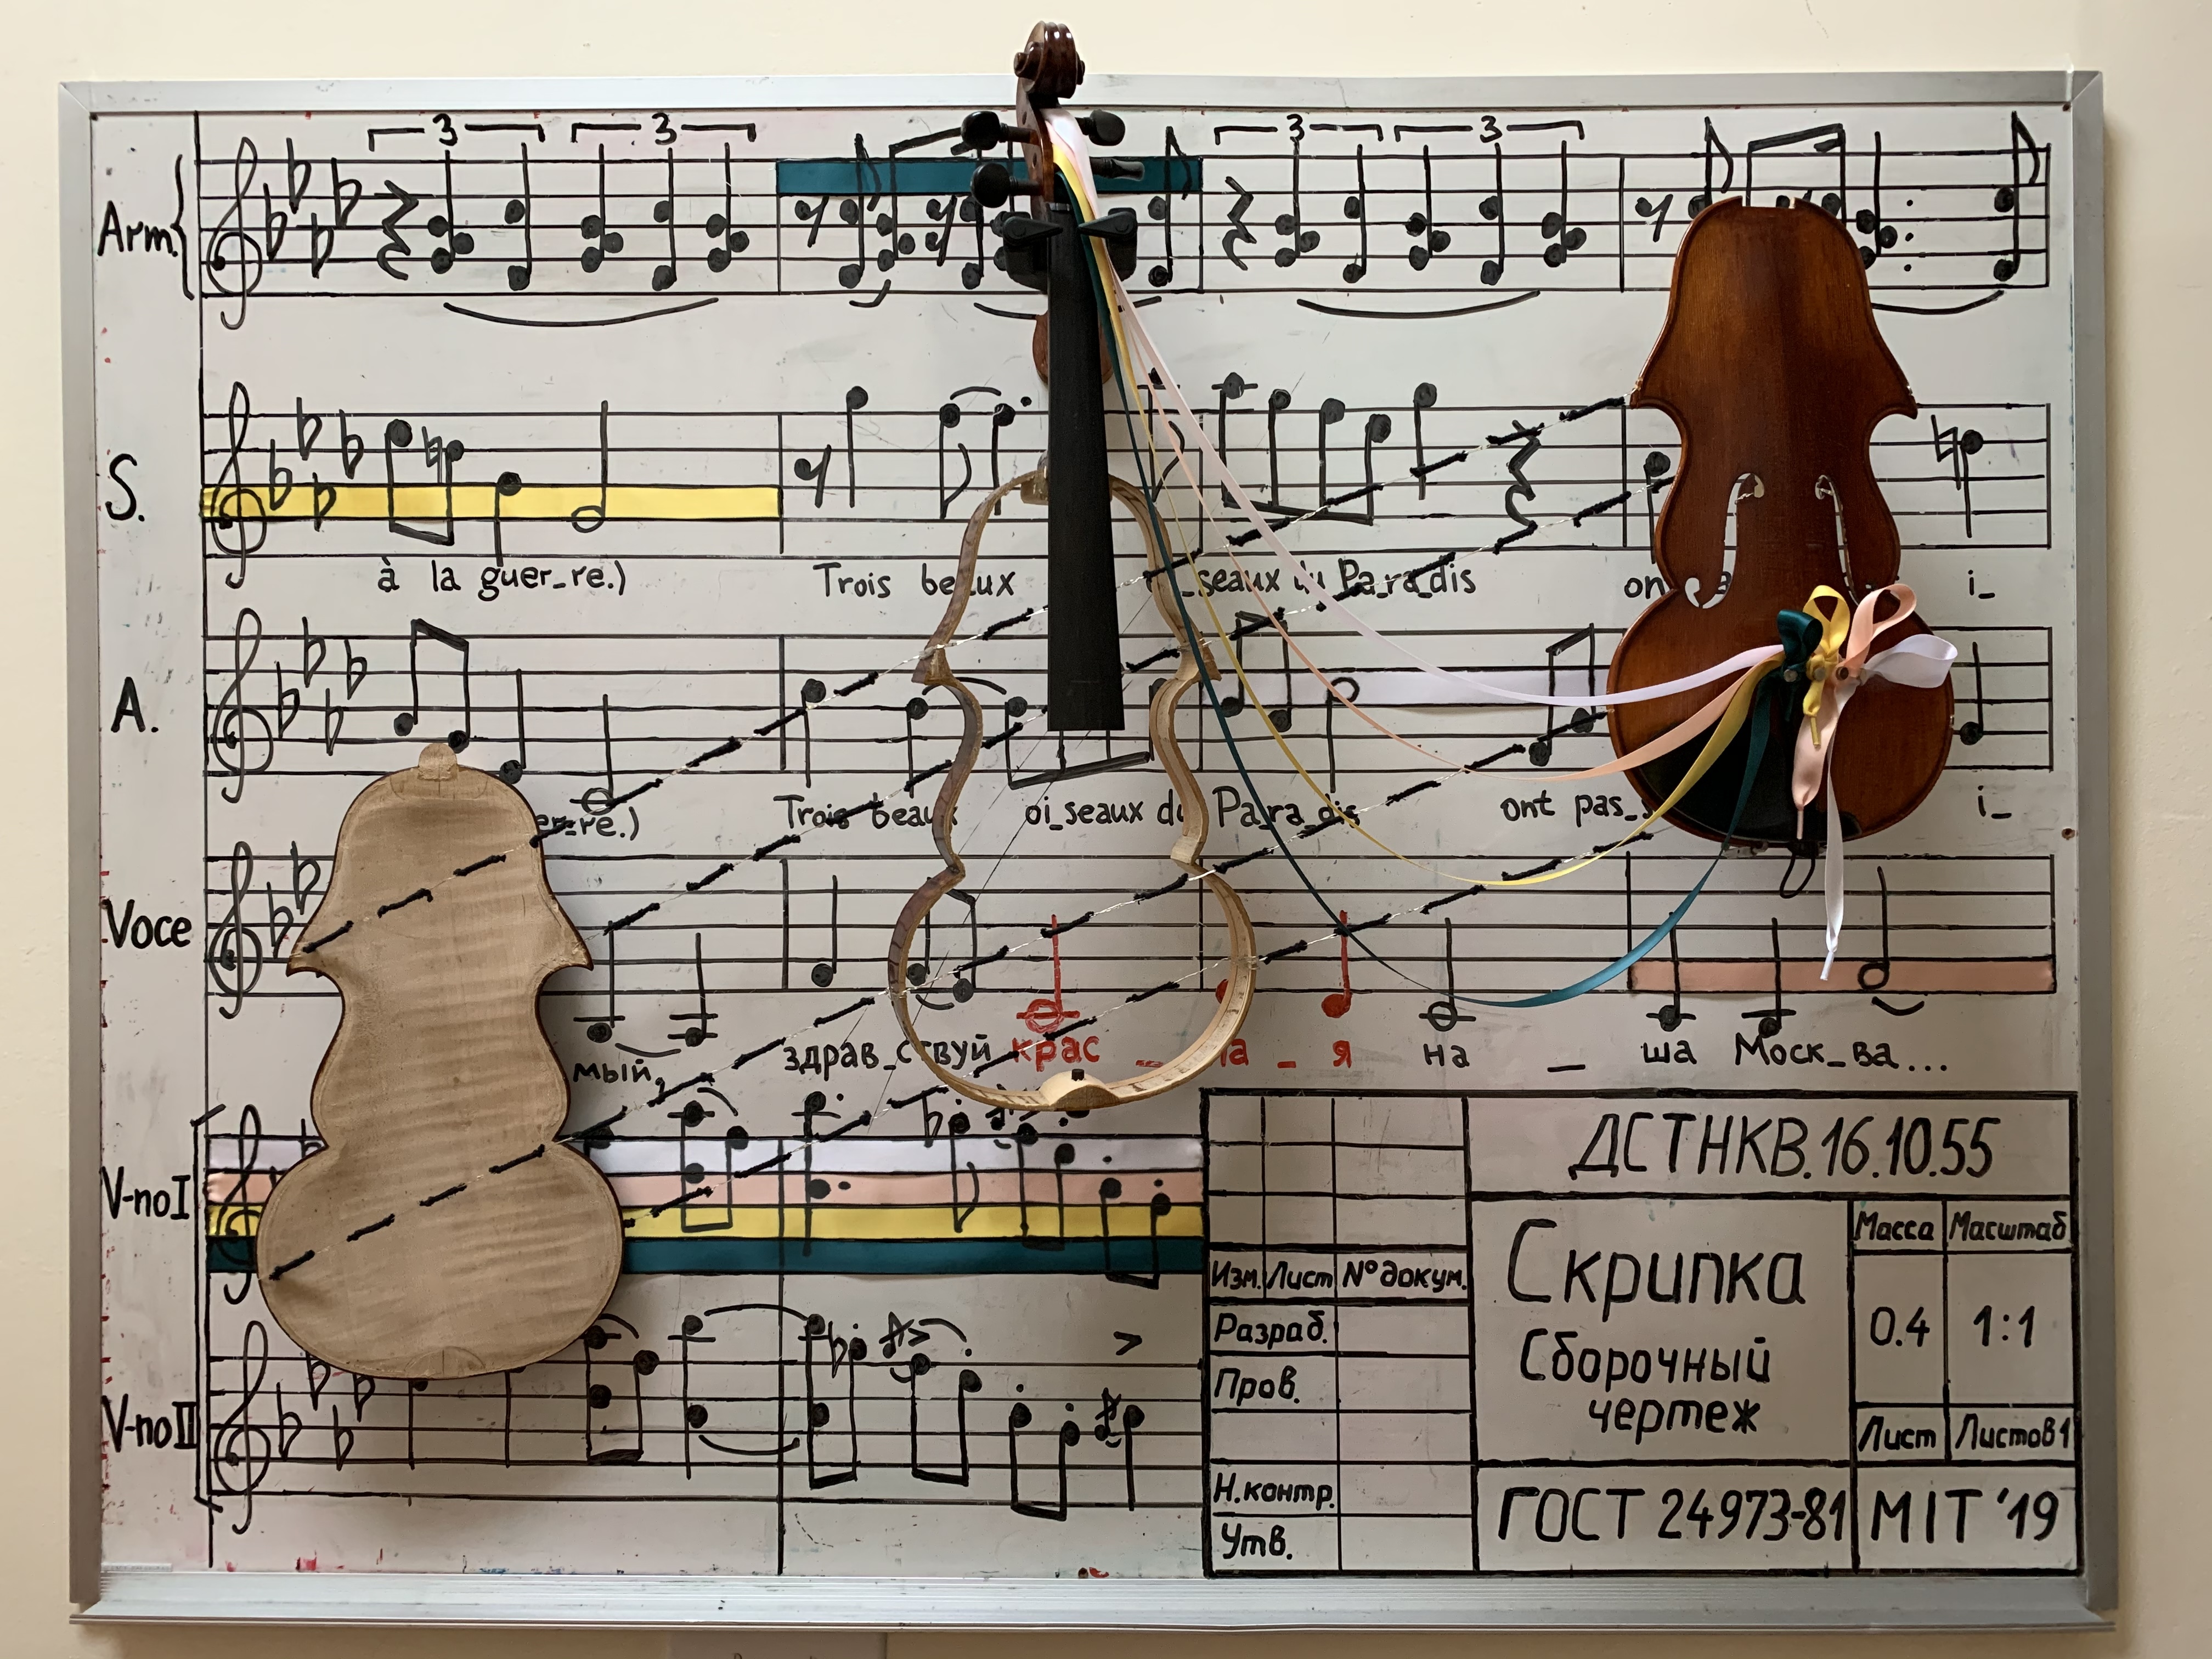 3 3 3 3
Arm.
S.
à la guer_re.) Trois beaux _seaux du Pa_ra_dis i_
A.
re.) Trois beaux oi_seaux du Pa_ra_dis ont pas_ i_
Voce
мый, здрав_ствуй крас _ на _ я на _ ша Моск_ва...
V-no I
V-no II
ДСТНКВ.16.10.55
Изм. Лист № докум.
Разраб.
Пров.
Н.контр.
Утв.
Скрипка
Сборочный
чертеж
Масса Масштаб
0.4 1:1
Лист Листов 1
ГОСТ 24973-81 MIT '19